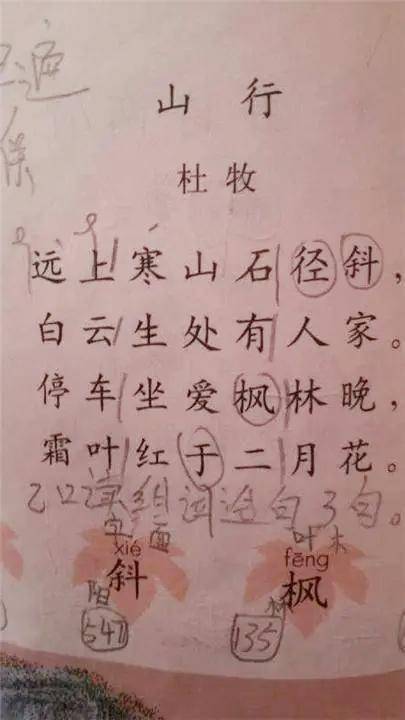 山 行
杜牧
远上寒山石径斜，
白云生处有人家。
停车坐爱枫林晚，
霜叶红于二月花。
口读组词造句3句。
xié fēng
斜 枫
547 135